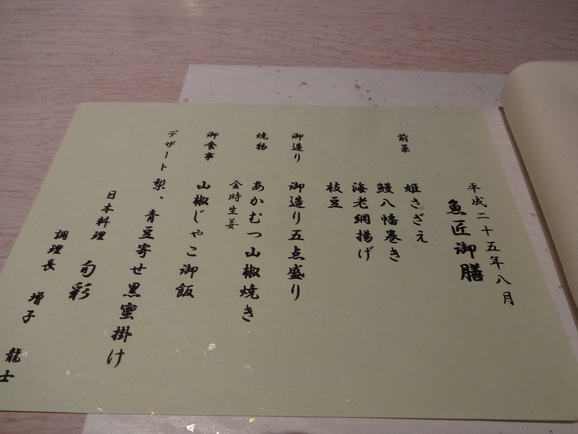 平成二十五年八月
魚匠御膳
前菜
姫さざえ
鰻八幡巻き
海老網揚げ
枝豆
御造り 御造り五点盛り
焼物 あかむつ山椒焼き
金時生姜
御食事 山椒じゃこ御飯
デザート 梨、青豆寄せ黒蜜掛け
日本料理 旬彩
調理長 増子 龍士